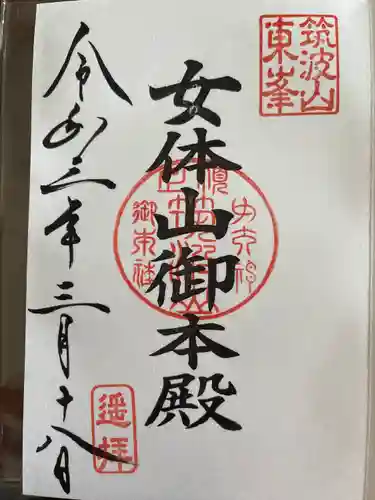 筑波山
東峯
女体山御本殿
令和三年三月十八日
遥拝